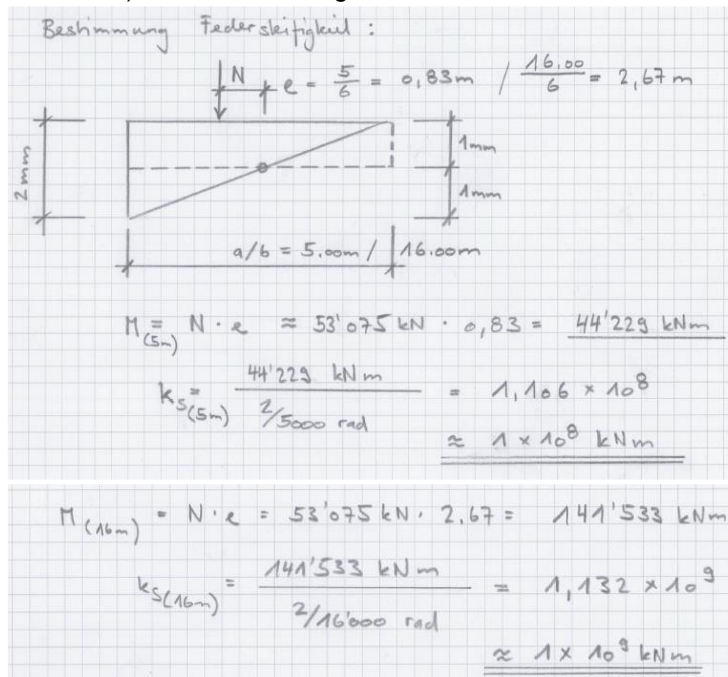 Bestimmung Federsteifigkeit :
N e = 5/6 = 0,83m / 16.00/6 = 2,67 m
1mm
2mm
1mm
a/b = 5.00m / 16.00m
M(5m) = N · e ≈ 53'075 kN · 0,83 = 44'229 kNm
kS(5m) = 44'229 kNm / 2/5000 rad = 1,106 × 10⁸
≈ 1 × 10⁸ kNm
M(16m) = N · e = 53'075 kN · 2,67 = 141'533 kNm
kS(16m) = 141'533 kNm / 2/16'000 rad = 1,132 × 10⁹
≈ 1 × 10⁹ kNm